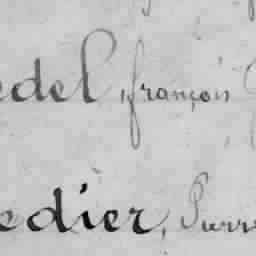 edel, françois
edier, Pierr